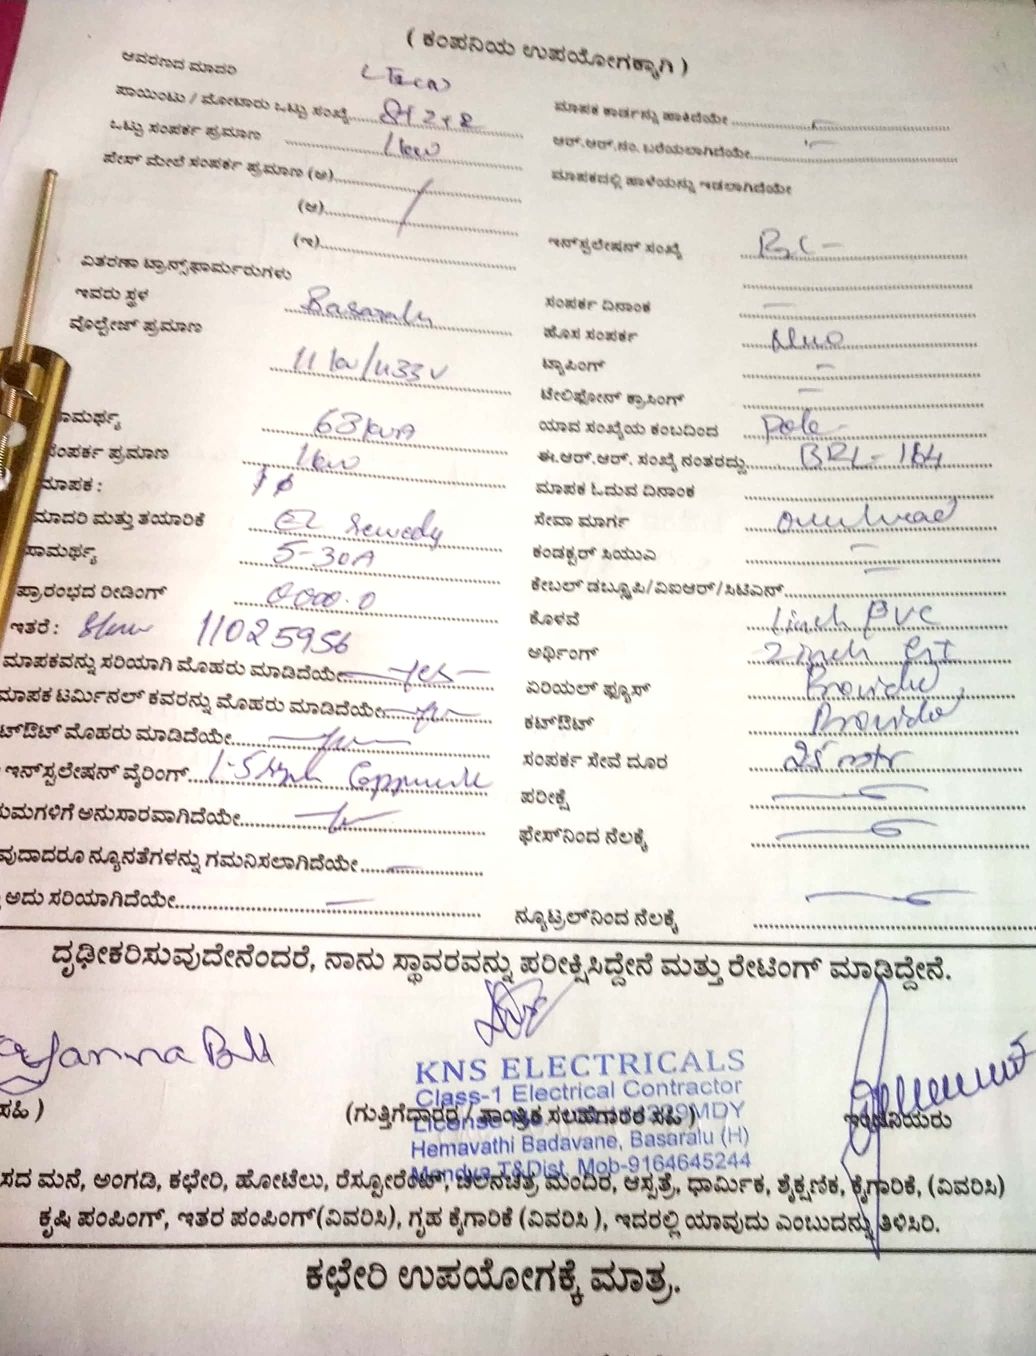 ( ಕಂಪನಿಯ ಉಪಯೋಗಕ್ಕಾಗಿ )
ಆವರಣದ ಮಾದರಿ
ಪಾಯಿಂಟು / ಮೋಟಾರು ಒಟ್ಟು ಸಂಖ್ಯೆ
ಒಟ್ಟು ಸಂಪರ್ಕ ಪ್ರಮಾಣ 1kw
ಪೇಸ್ ಮೇಲೆ ಸಂಪರ್ಕ ಪ್ರಮಾಣ (ಅ)
(ಆ)
(ಇ)
ವಿತರಣಾ ಟ್ರಾನ್ಸ್‌ಫಾರ್ಮರುಗಳು
ಇವರು ಸ್ಥಳ Basaralu
ವೊಲ್ಟೇಜ್ ಪ್ರಮಾಣ
11 kv/433 v
ಸಾಮರ್ಥ್ಯ 63 kvA
ಸಂಪರ್ಕ ಪ್ರಮಾಣ 1kw
ಮಾಪಕ : 1 ф
ಮಾದರಿ ಮತ್ತು ತಯಾರಿಕೆ EL Sewedy
ಸಾಮರ್ಥ್ಯ 5-30A
ಪ್ರಾರಂಭದ ರೀಡಿಂಗ್ 0000.0
ಇತರೆ : 11025956
ಮಾಪಕವನ್ನು ಸರಿಯಾಗಿ ಮೊಹರು ಮಾಡಿದೆಯೇ yes
ಮಾಪಕ ಟರ್ಮಿನಲ್ ಕವರನ್ನು ಮೊಹರು ಮಾಡಿದೆಯೇ
ಟ್‌ಔಟ್ ಮೊಹರು ಮಾಡಿದೆಯೇ
ಇನ್‌ಸ್ಟಲೇಷನ್ ವೈರಿಂಗ್
ಯಮಗಳಿಗೆ ಅನುಸಾರವಾಗಿದೆಯೇ
ವುದಾದರೂ ನ್ಯೂನತೆಗಳನ್ನು ಗಮನಿಸಲಾಗಿದೆಯೇ
ಅದು ಸರಿಯಾಗಿದೆಯೇ
ಮಾಪಕ ಕಾರ್ಡನ್ನು ಹಾಕಿದೆಯೇ
ಆರ್.ಆರ್.ನಂ. ಬರೆಯಲಾಗಿದೆಯೇ
ಮಾಪಕದಲ್ಲಿ ಹಾಳೆಯನ್ನು ಇಡಲಾಗಿದೆಯೇ
ಇನ್‌ಸ್ಟಲೇಷನ್ ಸಂಖ್ಯೆ
ಸಂಪರ್ಕ ದಿನಾಂಕ
ಹೊಸ ಸಂಪರ್ಕ
ಟ್ಯಾಪಿಂಗ್
ಟೇಲಿಫೋನ್ ಕ್ರಾಸಿಂಗ್
ಯಾವ ಸಂಖ್ಯೆಯ ಕಂಬದಿಂದ pole
ಈ.ಆರ್.ಆರ್. ಸಂಖ್ಯೆ ನಂತರದ್ದು BRL-164
ಮಾಪಕ ಓದುವ ದಿನಾಂಕ
ಸೇವಾ ಮಾರ್ಗ overhead
ಕಂಡಕ್ಟರ್ ಸಿಯುಎ
ಕೇಬಲ್ ಡಬ್ಲ್ಯೂಪಿ/ವಿಐಆರ್/ಸಿಟಿಎನ್
ಕೊಳವೆ 1inch PVC
ಅರ್ಥಿಂಗ್ 2 inch GI
ಏರಿಯಲ್ ಫ್ಯೂಸ್ Provided
ಕಟ್‌ಔಟ್ Provided
ಸಂಪರ್ಕ ಸೇವೆ ದೂರ 25 mtr
ಪರೀಕ್ಷೆ
ಫೇಸ್‌ನಿಂದ ನೆಲಕ್ಕೆ
ನ್ಯೂಟ್ರಲ್‌ನಿಂದ ನೆಲಕ್ಕೆ
ದೃಢೀಕರಿಸುವುದೇನೆಂದರೆ, ನಾನು ಸ್ಥಾವರವನ್ನು ಪರೀಕ್ಷಿಸಿದ್ದೇನೆ ಮತ್ತು ರೇಟಿಂಗ್ ಮಾಡಿದ್ದೇನೆ.
KNS ELECTRICALS
Class-1 Electrical Contractor
ಸಹಿ ) (ಗುತ್ತಿಗೆದಾರರ / ತಾಂತ್ರಿಕ ಸಲಹೆಗಾರರ ಸಹಿ ) ಇಂಜಿನಿಯರು
Hemavathi Badavane, Basaralu (H)
Mandya T&Dist. Mob-9164645244
ಸದ ಮನೆ, ಅಂಗಡಿ, ಕಛೇರಿ, ಹೋಟೆಲು, ರೆಸ್ಟೋರೆಂಟ್, ಚಲನಚಿತ್ರ ಮಂದಿರ, ಆಸ್ಪತ್ರೆ, ಧಾರ್ಮಿಕ, ಶೈಕ್ಷಣಿಕ, ಕೈಗಾರಿಕೆ, (ವಿವರಿಸಿ)
ಕೃಷಿ ಪಂಪಿಂಗ್, ಇತರ ಪಂಪಿಂಗ್ (ವಿವರಿಸಿ), ಗೃಹ ಕೈಗಾರಿಕೆ (ವಿವರಿಸಿ ), ಇದರಲ್ಲಿ ಯಾವುದು ಎಂಬುದನ್ನು ತಿಳಿಸಿರಿ.
ಕಛೇರಿ ಉಪಯೋಗಕ್ಕೆ ಮಾತ್ರ.